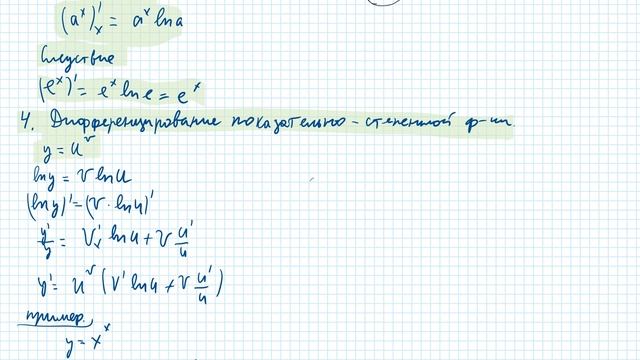 (aˣ)'ₓ = aˣ ln a
Следствие
(eˣ)' = eˣ ln e = eˣ
4. Дифференцирование показательно-степенной ф-ии
y = uᵛ
ln y = v ln u
(ln y)' = (v · ln u)'
y'/y = v' ln u + v u'/u
y' = uᵛ (v' ln u + v u'/u)
пример.
y = xˣ